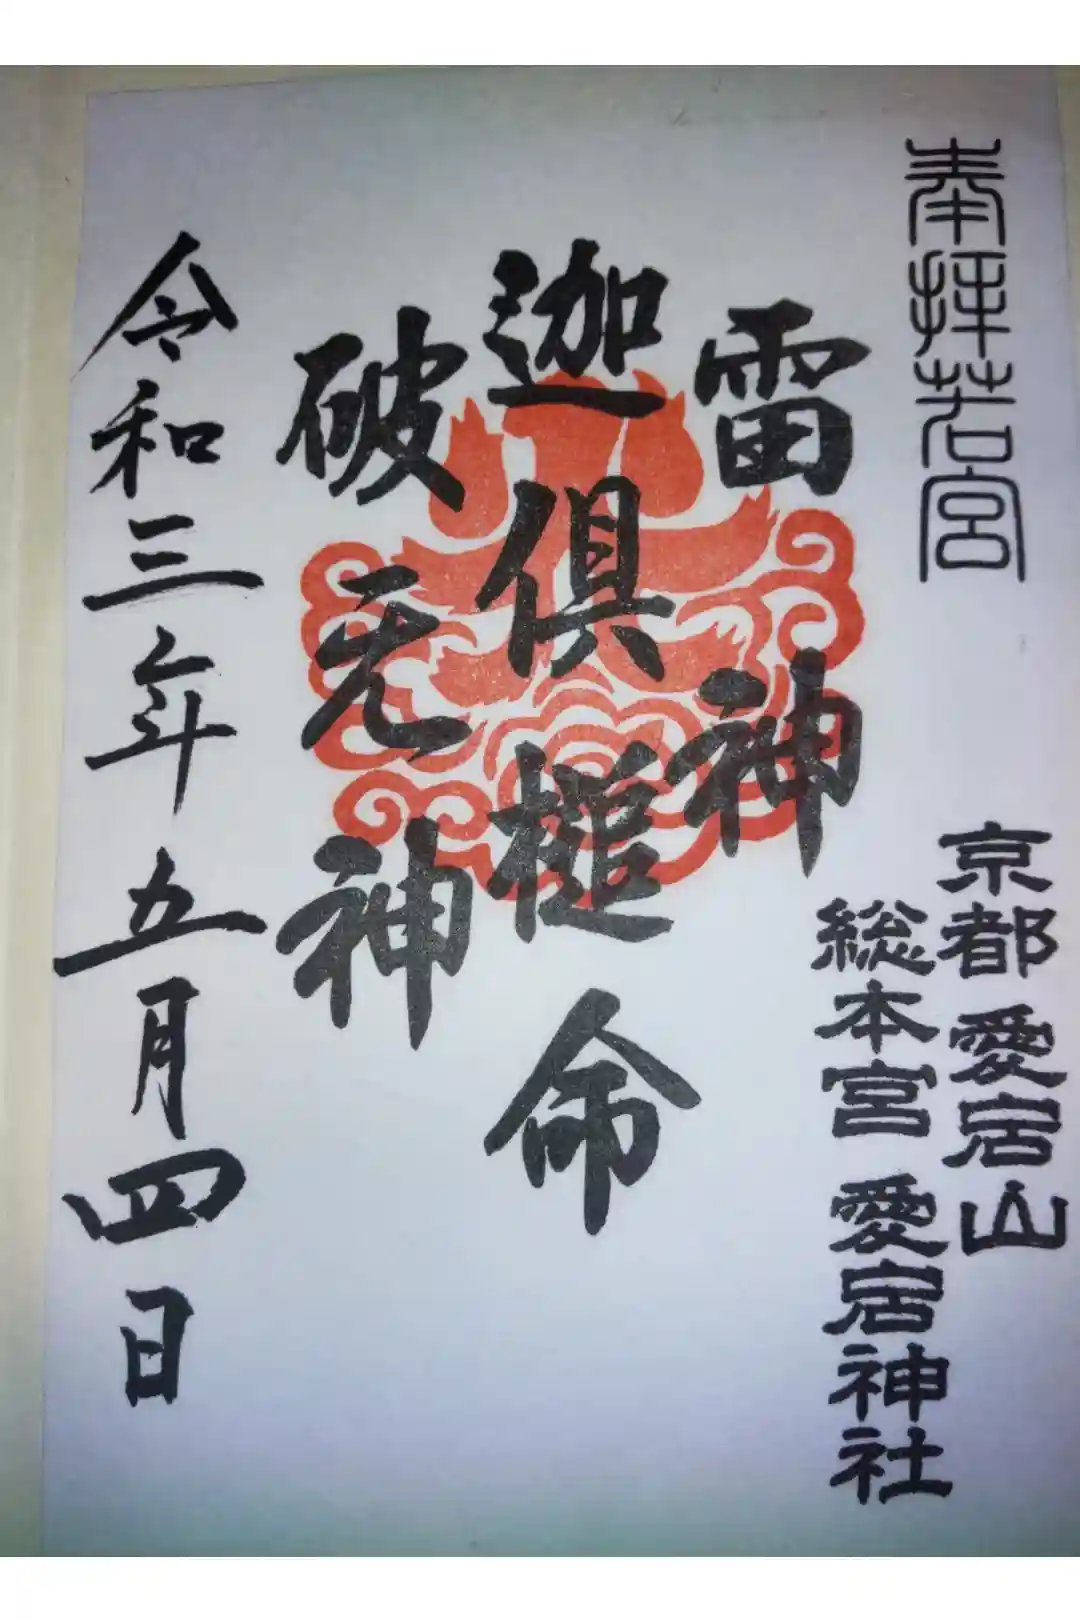 奉拝若宮
京都愛宕山
総本宮愛宕神社
雷神
迦倶槌命
破无神
令和三年五月四日